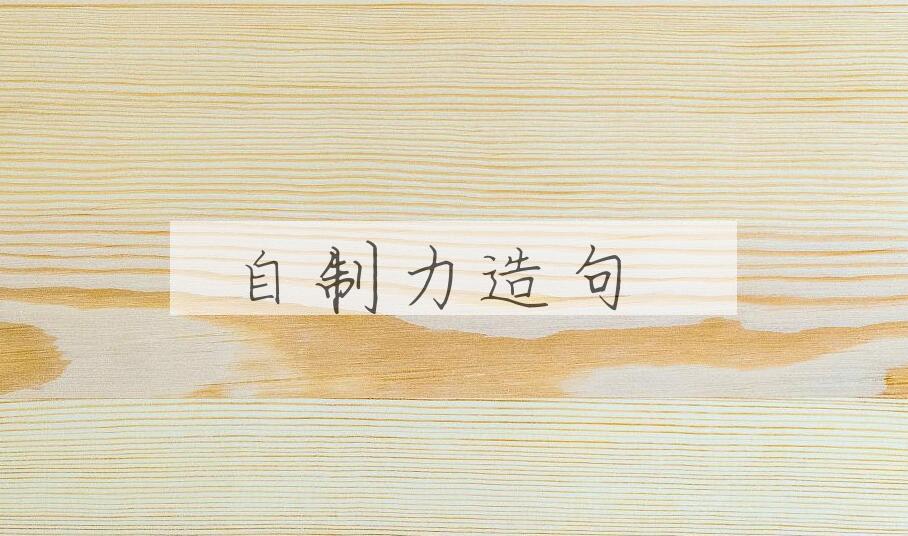 自制力造句